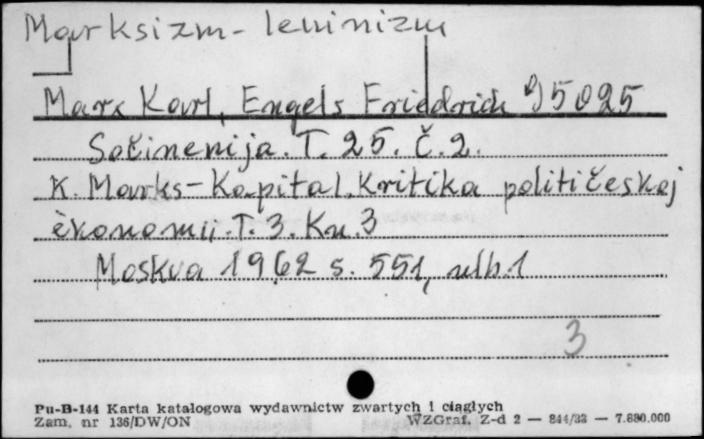 Marksizm-leninizm
Marx Karl, Engels Friedrich 95025
Sočinenija. T. 25. Č. 2.
K. Marks-Kapital. Kritika političeskoj
èkonomii. T. 3. Kn. 3
Moskva 1962 s. 551, nlb. 1
3
Pu-B-144 Karta katalogowa wydawnictw zwartych i ciągłych
Zam. nr 136/DW/ON WZGraf. Z-d 2 — 844/83 — 7.880.000